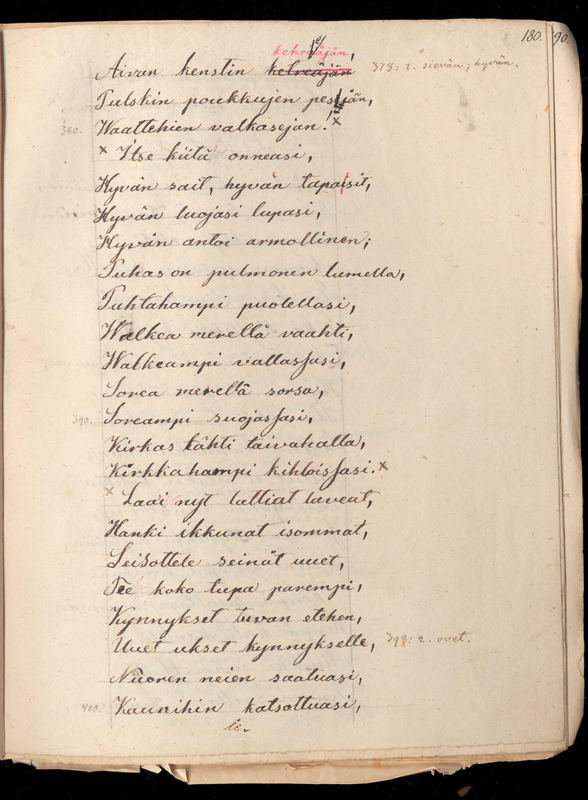 180. 90.
kehreäjän,
Aivan henstin kehreäjän 378: 2. sievän; hyvän.
Tulskin poukkujen pesijän,
380. Waattehien valkasejan!
Itse kiitä onneasi,
Hyvän sait, hyvän tapaisit,
Hyvän luojasi lupasi,
Hyvän antoi armollinen;
Puhas on pulmonen lumella,
Puhtahampi puolellasi,
Walkea merellä vaahti,
Walkeampi vallassasi,
Sorea merellä sorsa,
390. Soreampi suojassasi,
Kirkas tähti taivahalla,
Kirkkahampi kihloissasi.
Laai nyt lattiat laveat,
Hanki ikkunat isommat,
Seisottele seinät uuet,
Tee koko tupa parempi,
Kynnykset tuvan etehen,
Uuet ukset kynnykselle, 398: 2. ovet.
Nuoren neien saatuasi,
400. Kaunihin katsottuasi,